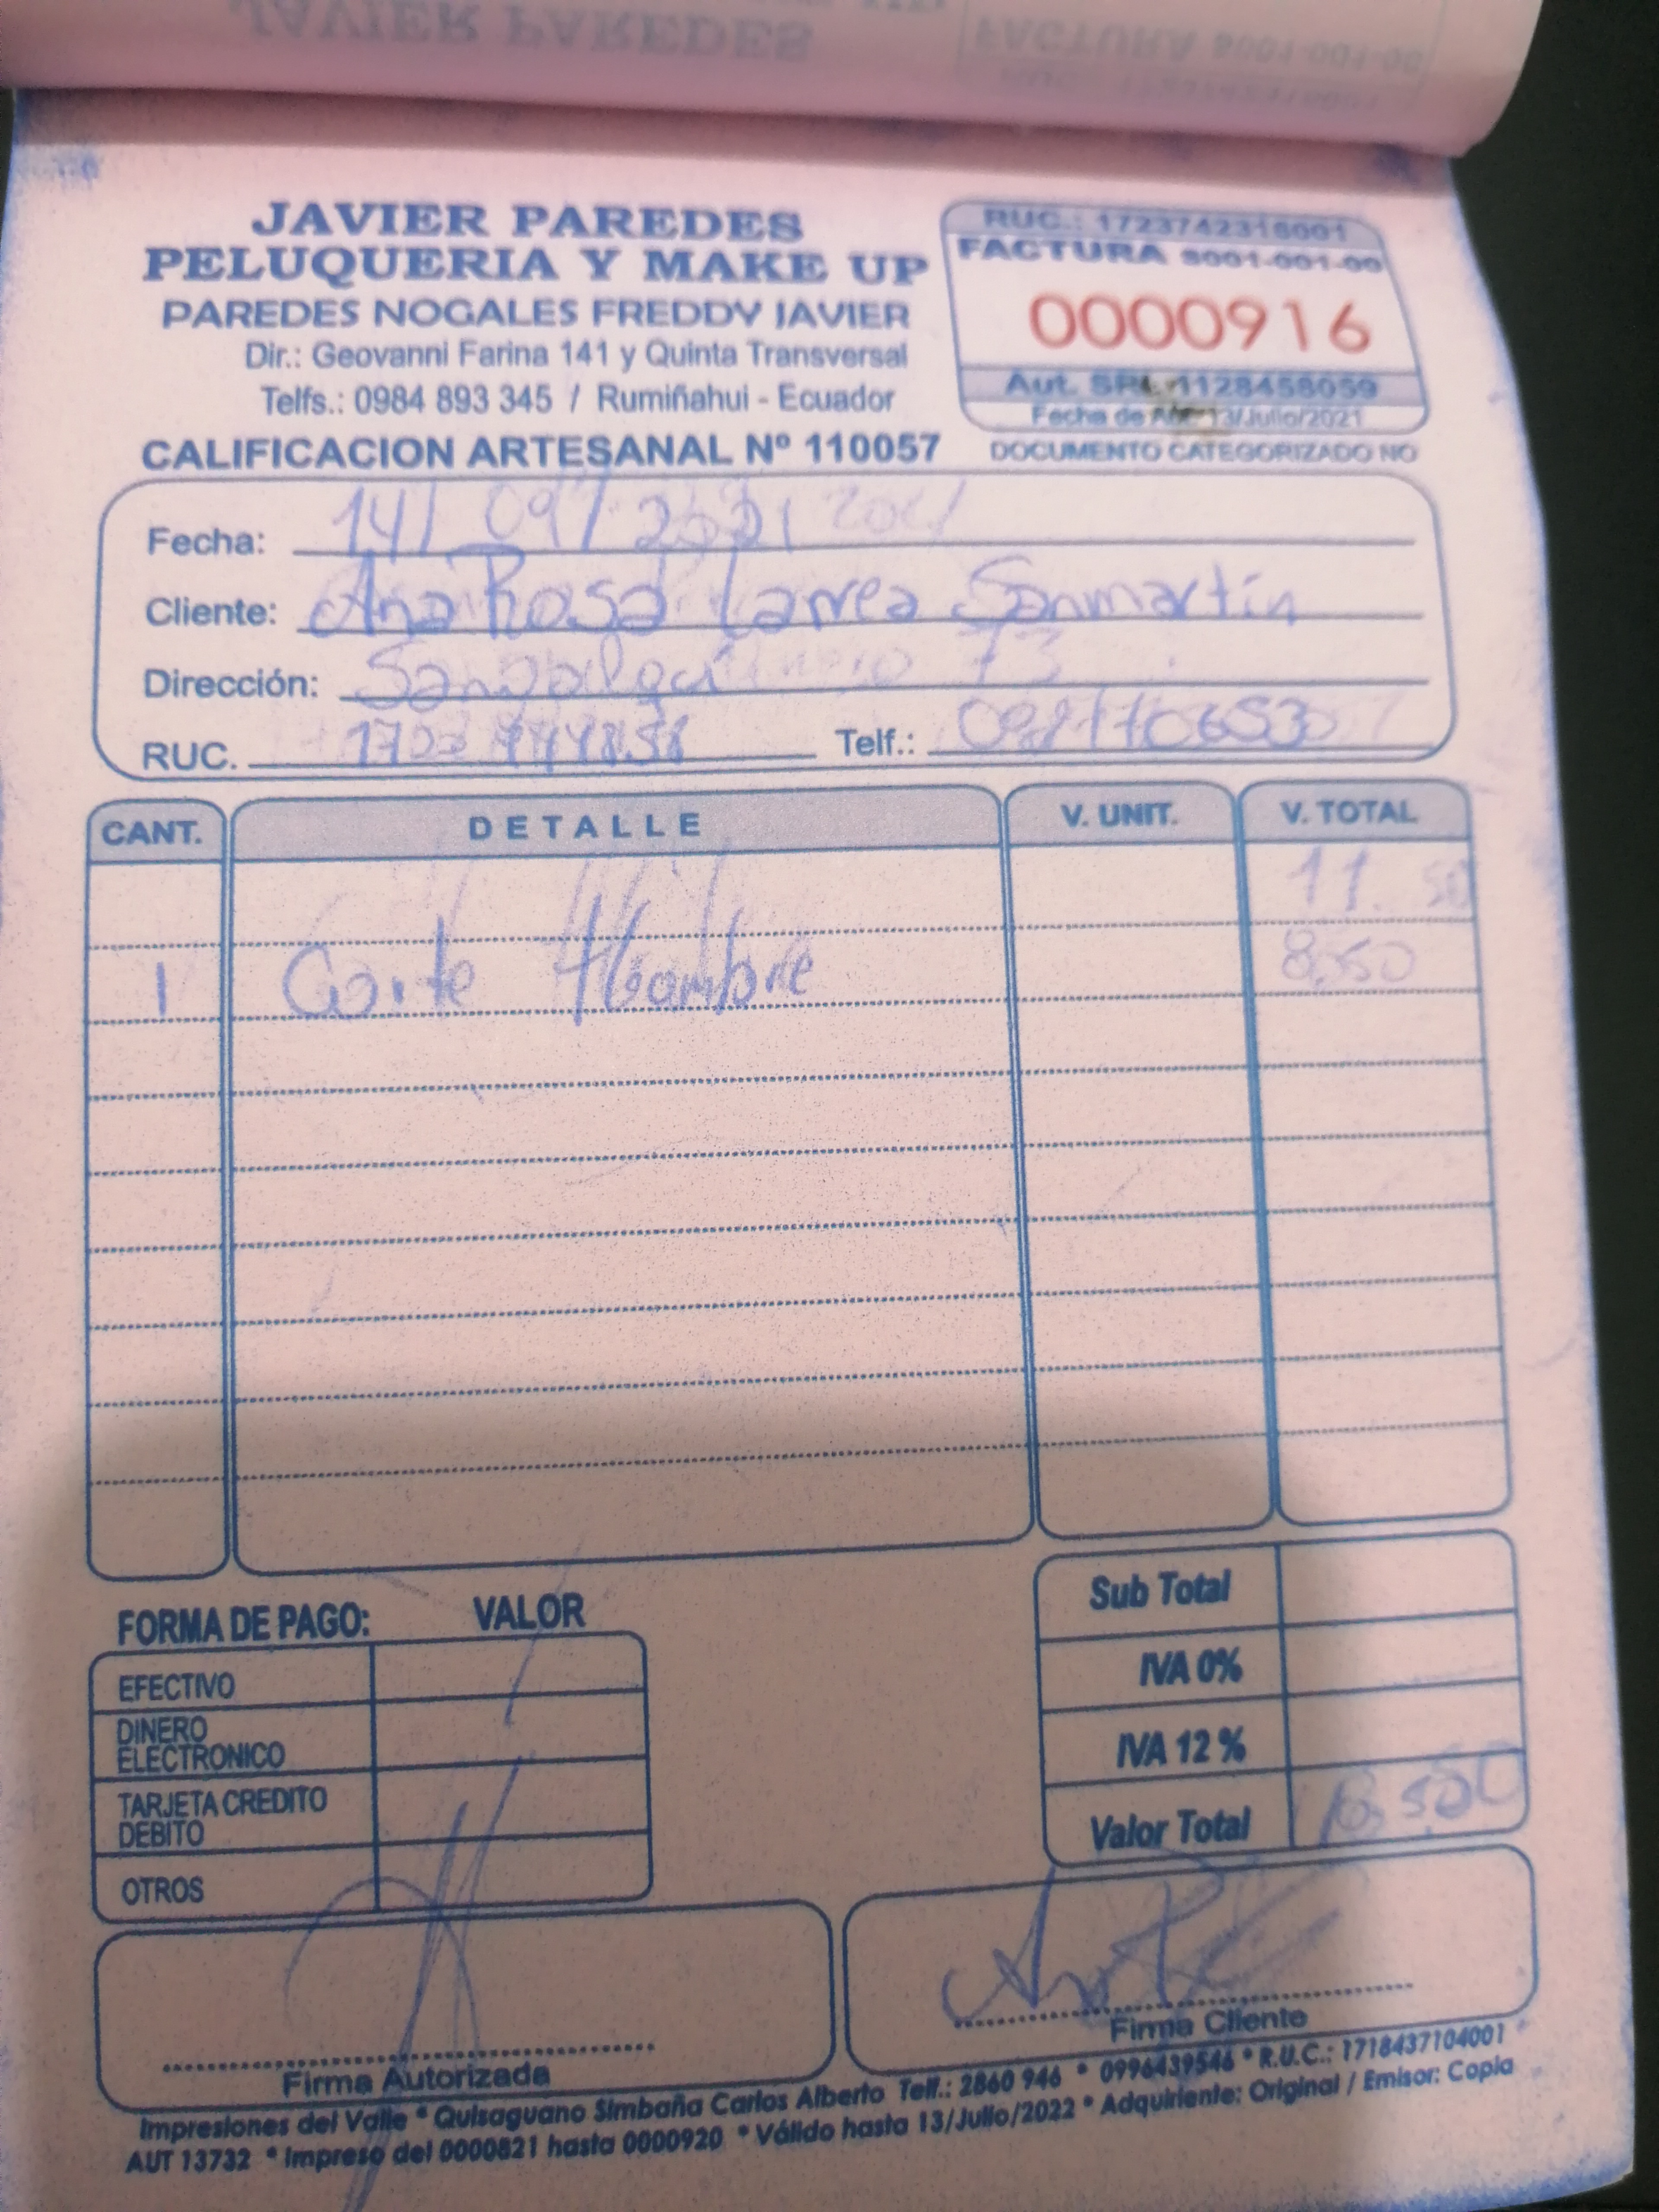 JAVIER PAREDES
FACTURA
JAVIER PAREDES
PELUQUERIA Y MAKE UP
PAREDES NOGALES FREDDY JAVIER
Dir.: Geovanni Farina 141 y Quinta Transversal
Telfs.: 0984 893 345 / Rumiñahui - Ecuador
CALIFICACION ARTESANAL Nº 110057
RUC.: 1723742316001
FACTURA S001-001-00
0000916
Aut. SRI. 1128458059
Fecha de Aut. 13/Julio/2021
DOCUMENTO CATEGORIZADO NO
Fecha: 14/ 09/ 2021
Cliente: Ana Rosa Larrea Sanmartín
Dirección: Sangolquí
RUC. Telf.:
CANT. DETALLE V. UNIT. V. TOTAL
11.50
1 Corte Hombre 8,50
FORMA DE PAGO: VALOR
EFECTIVO
DINERO ELECTRONICO
TARJETA CREDITO DEBITO
OTROS
Sub Total
IVA 0%
IVA 12 %
Valor Total
Firma Autorizada
Firma Cliente
Impresiones del Valle * Quisaguano Simbaña Carlos Alberto Telf.: 2860 946 * 0996439546 * R.U.C.: 1718437104001
AUT 13732 * Impreso del 0000821 hasta 0000920 * Válido hasta 13/Julio/2022 * Adquiriente: Original / Emisor: Copia